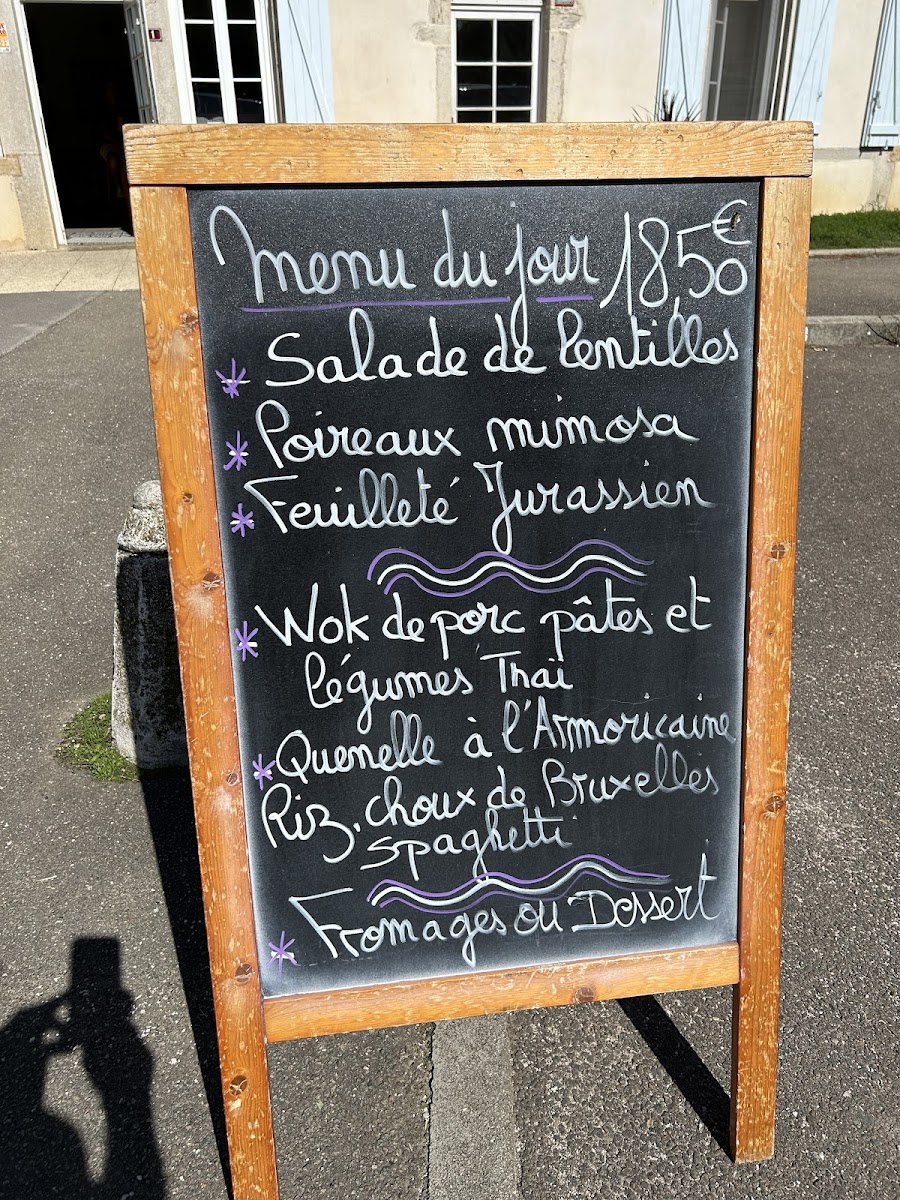 Menu du jour 18,50€
* Salade de lentilles
* Poireaux mimosa
* Feuilleté Jurassien
* Wok de porc pâtes et
légumes Thaï
* Quenelle à l'Armoricaine
Riz, choux de Bruxelles
spaghetti
* Fromages ou Dessert
1